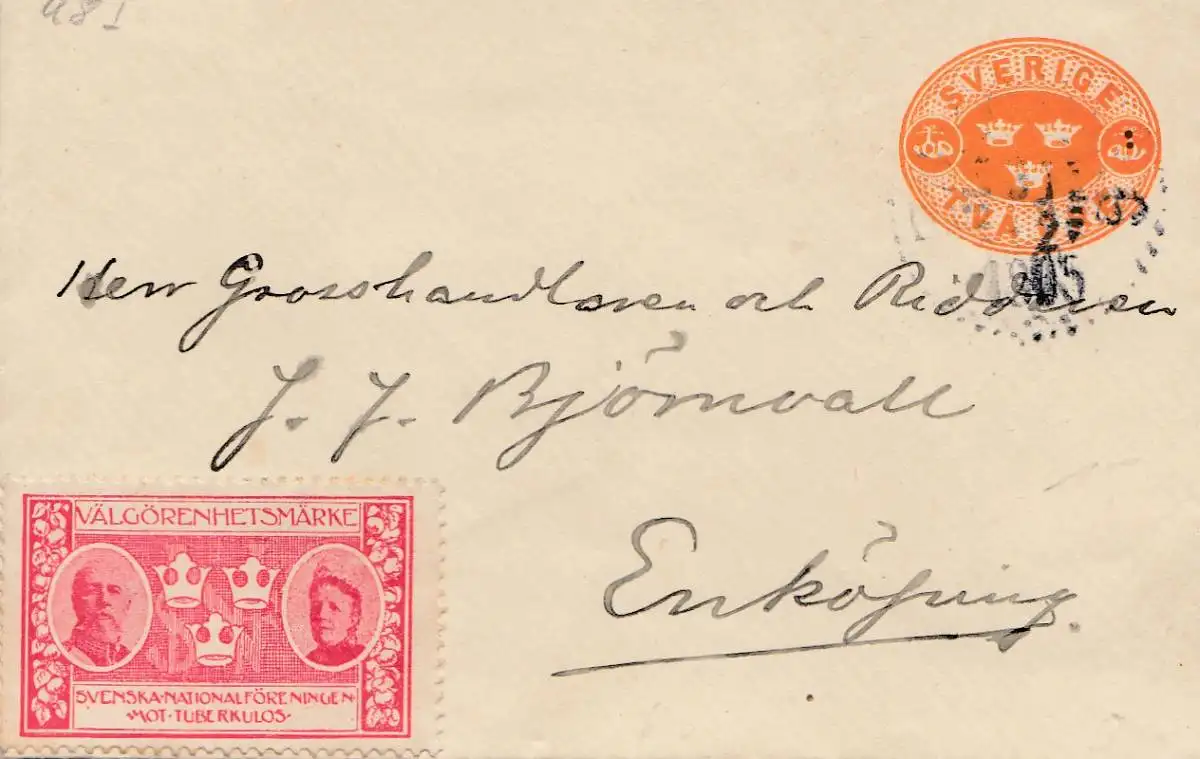 98 I
SVERIGE
TVÅ ÖRE
1905
Herr Grosshandlaren och Riddaren
J. J. Björnvall
Enköping.
VÄLGÖRENHETSMÄRKE
SVENSKA·NATIONALFÖRENINGEN·
·MOT·TUBERKULOS·